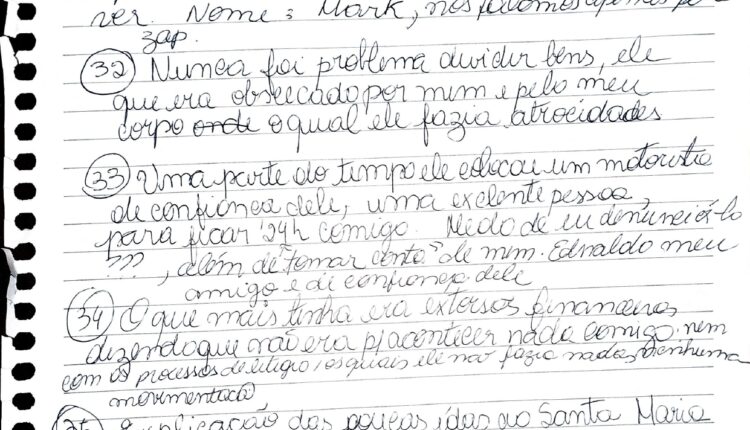 ver. Nome: Mark, nós falamos apenas
zap.
(32) Nunca foi problema dividir bens, ele
que era obsecado por mim e pelo meu
corpo onde o qual ele fazia atrocidades
(33) Uma parte do tempo ele colocou um motorista
de confiança dele, uma exelente pessoa,
para ficar 24h comigo. Medo de eu denunciá-lo
???, além de "tomar conta" de mim. Ednaldo meu
amigo e di confiança dele
(34) O que mais tinha era extorsos financeiros
dizendo que não era p/ acontecer nada comigo. nem
com os processos de litígio, os quais ele não fazia nada, nenhuma
movimentação,
das poucas idas ao Santa Maria